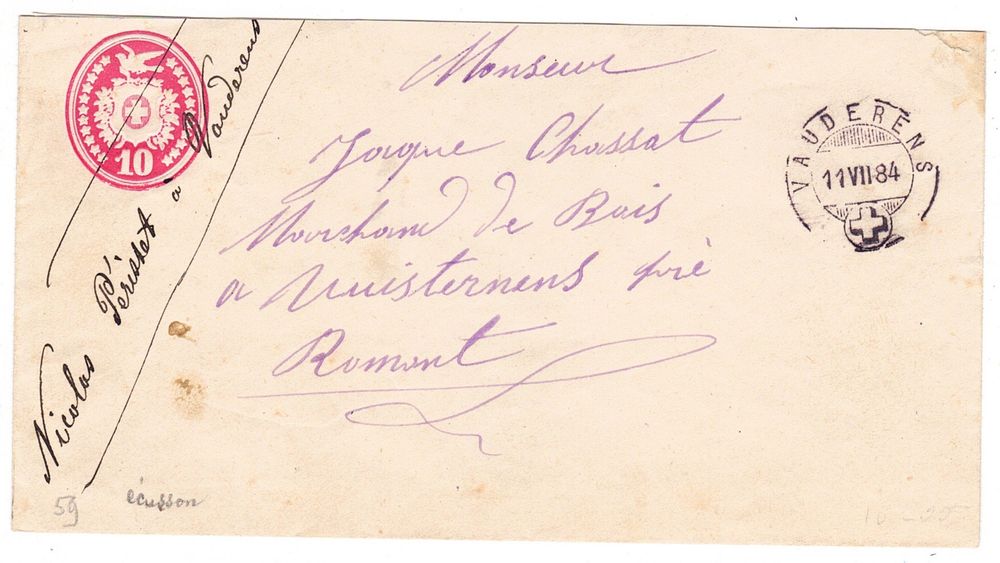 10
Nicolas Périsset à Vauderens
Monseur
Jaque Chassat
Marchand de Bois
a Vuisternens prè
Romont
VAUDERENS
11 VII 84
59
écusson